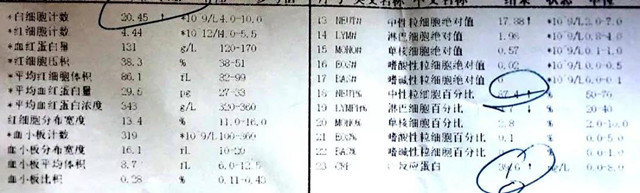 *白细胞计数 20.45 ↑ *10^9/L 4.0-10.0
*红细胞计数 4.44 *10^12/L 4.0-5.5
*血红蛋白量 131 g/L 120-170
*红细胞压积 38.3 % 38-51
*平均红细胞体积 86.1 fL 82-99
*平均血红蛋白量 29.5 pg 27-33
*平均血红蛋白浓度 343 g/L 320-360
红细胞分布宽度 13.4 % 11.0-16.0
*血小板计数 319 *10^9/L 100-300
血小板分布宽度 16.1 fL 10-20
血小板平均体积 8.7 fL 6.0-12.5
血小板比积 0.28 % 0.11-0.43
13 NEUT# 中性粒细胞绝对值 17.88 ↑ *10^9/L 2.0-7.0
14 LYM# 淋巴细胞绝对值 1.96
15 MONO# 单核细胞绝对值 0.57 0.1-1.0
16 EO# 嗜酸性粒细胞绝对值 0.02
17 BAS# 嗜碱性粒细胞绝对值
18 NEUT% 中性粒细胞百分比 87.4 ↑ % 50-70
19 LYMPH% 淋巴细胞百分比 % 20-40
20 MONO% 单核细胞百分比 2.8 % 2.0-10.0
21 EO% 嗜酸性粒细胞百分比 0.1 %
22 BA% 嗜碱性粒细胞百分比 %
23 CRP 反应蛋白 ↑ mg/L 0.0-8.0